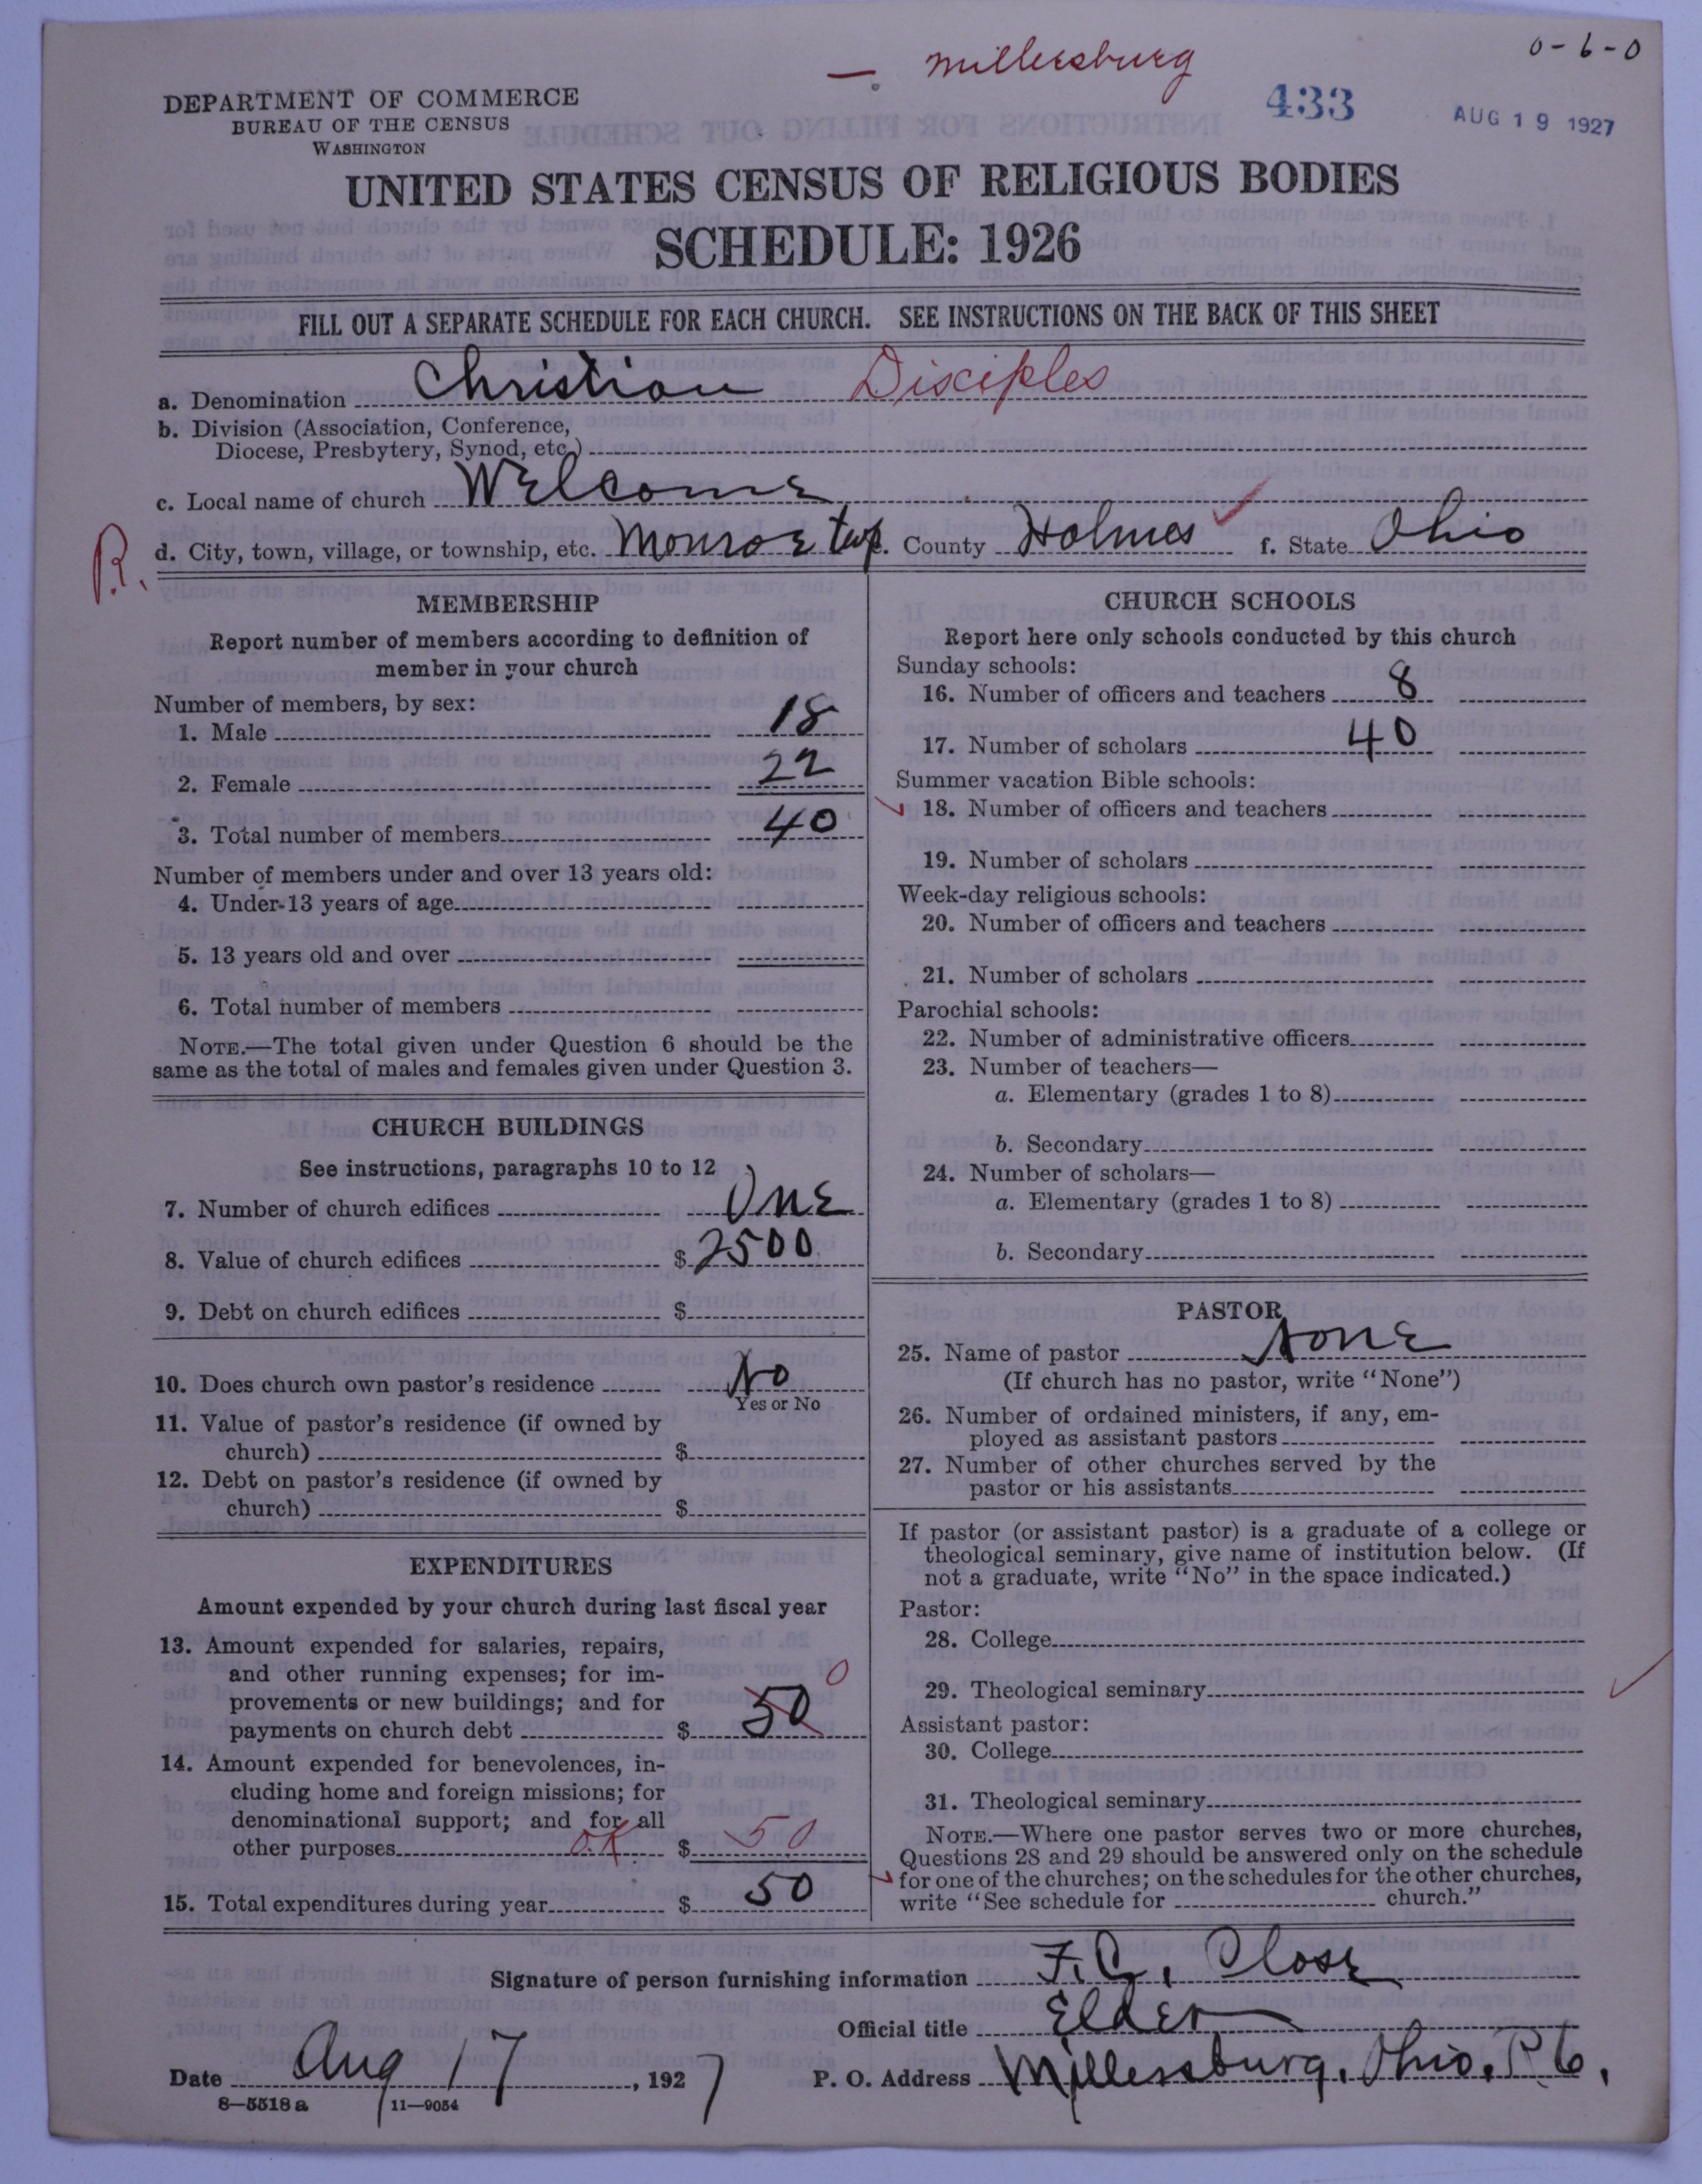 — Millersburg
0-6-0
DEPARTMENT OF COMMERCE
BUREAU OF THE CENSUS
WASHINGTON
433
AUG 19 1927
UNITED STATES CENSUS OF RELIGIOUS BODIES
SCHEDULE: 1926
FILL OUT A SEPARATE SCHEDULE FOR EACH CHURCH. SEE INSTRUCTIONS ON THE BACK OF THIS SHEET
a. Denomination Christian Disciples
b. Division (Association, Conference,
Diocese, Presbytery, Synod, etc.)
c. Local name of church Welcome
R. d. City, town, village, or township, etc. Monroe twp e. County Holmes ✓ f. State Ohio
MEMBERSHIP
Report number of members according to definition of
member in your church
Number of members, by sex:
1. Male 18
2. Female 22
3. Total number of members 40
Number of members under and over 13 years old:
4. Under 13 years of age
5. 13 years old and over
6. Total number of members
NOTE.—The total given under Question 6 should be the
same as the total of males and females given under Question 3.
CHURCH BUILDINGS
See instructions, paragraphs 10 to 12
7. Number of church edifices One
8. Value of church edifices $2500
9. Debt on church edifices $
10. Does church own pastor's residence No
Yes or No
11. Value of pastor's residence (if owned by
church) $
12. Debt on pastor's residence (if owned by
church) $
EXPENDITURES
Amount expended by your church during last fiscal year
13. Amount expended for salaries, repairs,
and other running expenses; for im-
provements or new buildings; and for
payments on church debt $ 50 0
14. Amount expended for benevolences, in-
cluding home and foreign missions; for
denominational support; and for all
other purposes OK $ 50
15. Total expenditures during year $ 50
CHURCH SCHOOLS
Report here only schools conducted by this church
Sunday schools:
16. Number of officers and teachers 8
17. Number of scholars 40
Summer vacation Bible schools:
✓ 18. Number of officers and teachers
19. Number of scholars
Week-day religious schools:
20. Number of officers and teachers
21. Number of scholars
Parochial schools:
22. Number of administrative officers
23. Number of teachers—
a. Elementary (grades 1 to 8)
b. Secondary
24. Number of scholars—
a. Elementary (grades 1 to 8)
b. Secondary
PASTOR
25. Name of pastor None
(If church has no pastor, write "None")
26. Number of ordained ministers, if any, em-
ployed as assistant pastors
27. Number of other churches served by the
pastor or his assistants
If pastor (or assistant pastor) is a graduate of a college or
theological seminary, give name of institution below. (If
not a graduate, write "No" in the space indicated.)
Pastor:
28. College
29. Theological seminary ✓
Assistant pastor:
30. College
31. Theological seminary
NOTE.—Where one pastor serves two or more churches,
Questions 28 and 29 should be answered only on the schedule
✓ for one of the churches; on the schedules for the other churches,
write "See schedule for church."
Signature of person furnishing information F. C. Close
Official title Elder
Date Aug 17, 1927 P. O. Address Millersburg, Ohio, R 6.
8—5518 a 11—9054